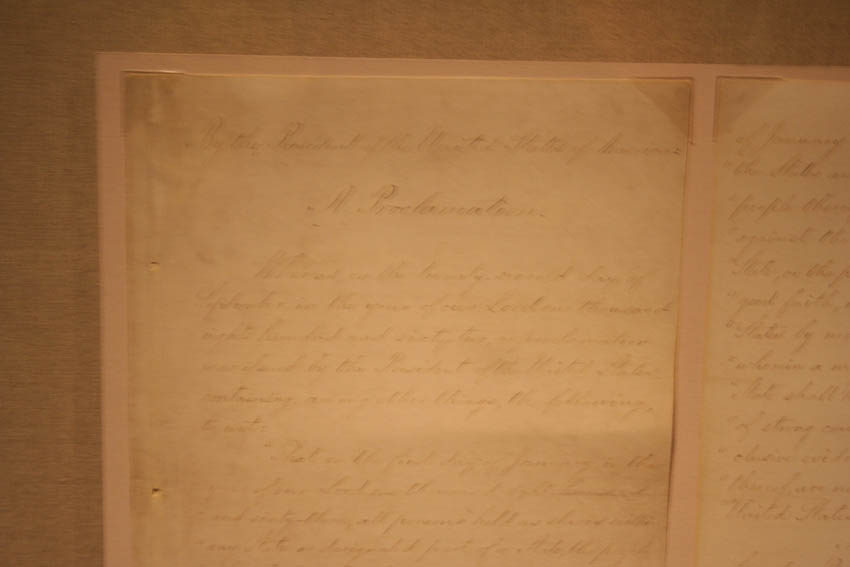 By the President of the United States of America:
A Proclamation.
Whereas, on the twenty-second day of
September, in the year of our Lord one thousand
eight hundred and sixty two, a proclamation
was issued by the President of the United States,
containing, among other things, the following,
to wit:
"That on the first day of January, in the
year of our Lord one thousand eight hundred
and sixty-three, all persons held as slaves within
any State or designated part of a State, the people
of January
the States
people
against the
State, or the
good faith,
States by
wherein a
State shall
of strong
clusive
thereof, are
United States